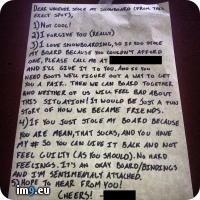 DEAR WHOEVER STOLE MY SNOWBOARD (FROM THIS
EXACT SPOT),
1) NOT COOL!
2) I FORGIVE YOU (REALLY)
3) I LOVE SNOWBOARDING, SO IF YOU STOLE
MY BOARD BECAUSE YOU COULDN'T AFFORD
ONE, PLEASE CALL ME AT
AND I'LL GIVE IT TO YOU. AND IF YOU
NEED BOOTS WE'LL FIGURE OUT A WAY TO GET
YOU A PAIR. THEN WE CAN BOARD TOGETHER
AND NEITHER OF US WILL FEEL BAD ABOUT
THIS SITUATION! IT WOULD BE JUST A FUN
STORY OF HOW WE BECAME FRIENDS.
4) IF YOU JUST STOLE MY BOARD BECAUSE
YOU ARE MEAN, THAT SUCKS, AND YOU HAVE
MY # SO YOU CAN GIVE IT BACK AND NOT
FEEL GUILTY (AS YOU SHOULD). NO HARD
FEELINGS. IT'S AN OKAY BOARD/BINDINGS
AND I'M SENTIMENTALLY ATTACHED.
5) HOPE TO HEAR FROM YOU!
CHEERS!
img9.eu